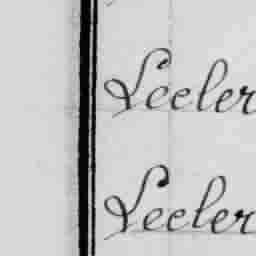 Leeler
Leeler